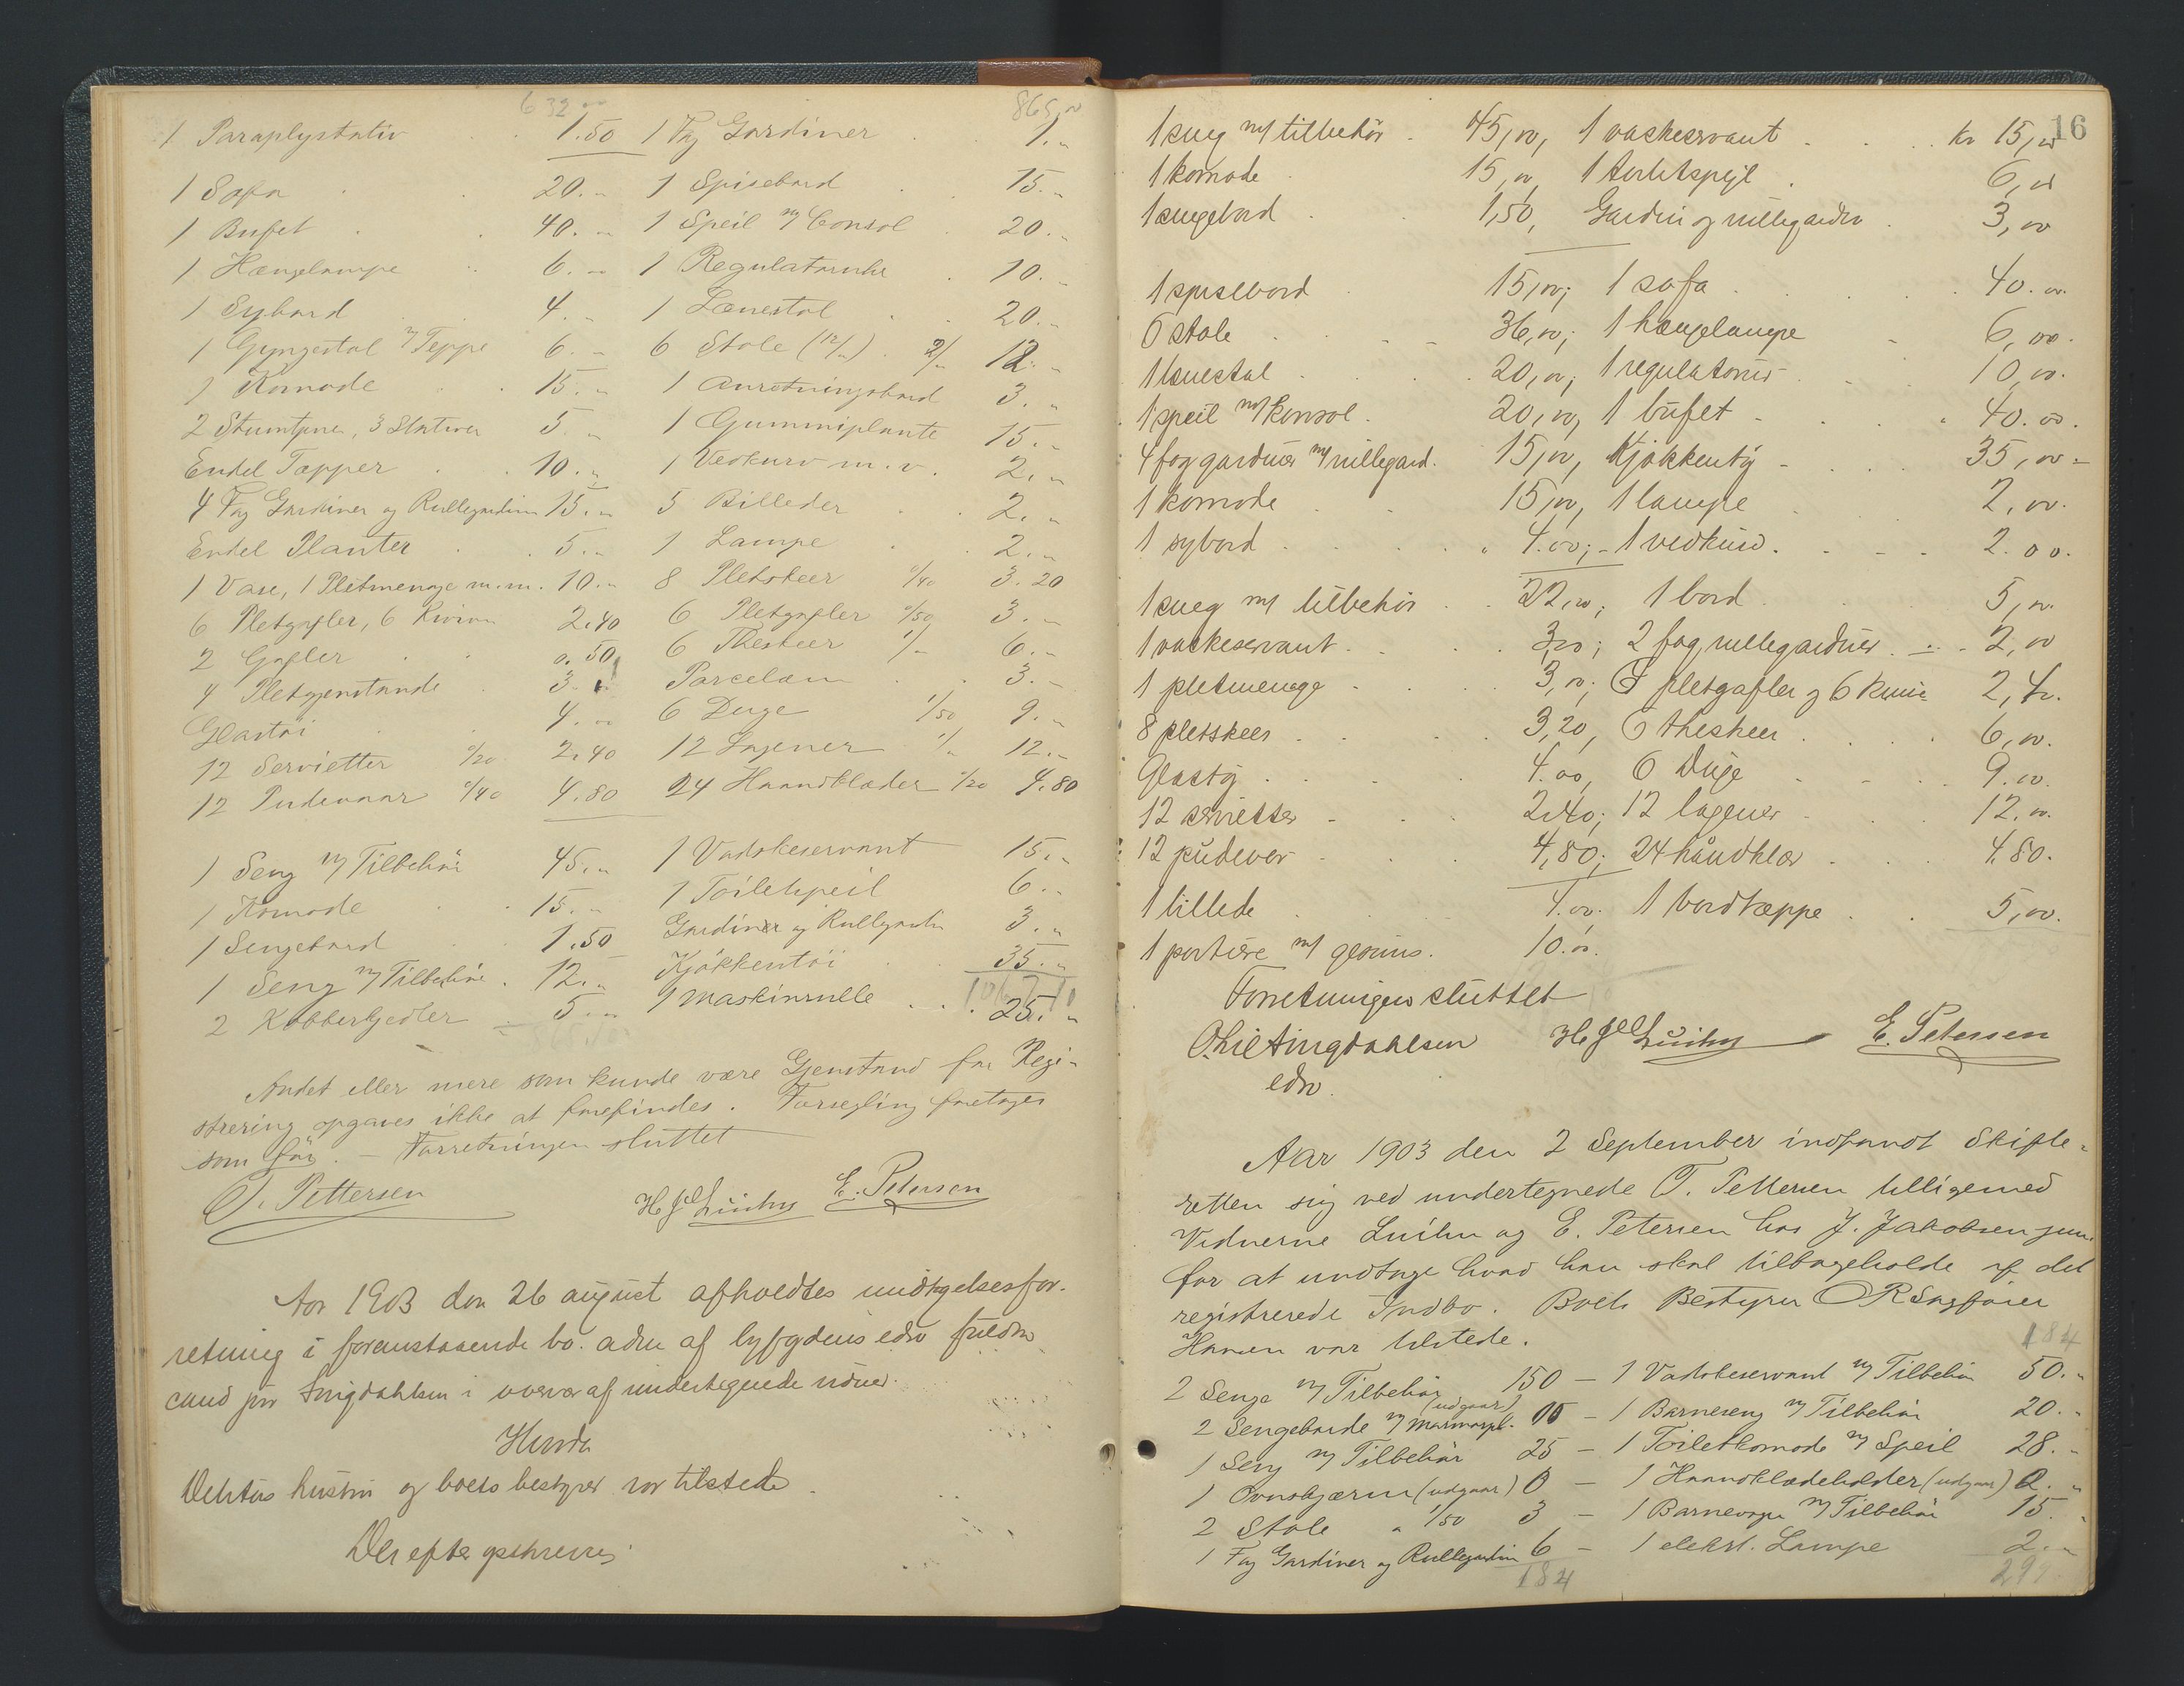 632 865,00
1 Paraplystativ 1.50 1 Fag Gardiner 1.„
1 Sofa 20.„ 1 Spisebord 15.„
1 Bufet 40.„ 1 Speil m/ Consol 20.„
1 Hængelampe 6.„ 1 Regulatoruhr 10.„
1 Sybord 4.„ 1 Lænestol 20.„
1 Gyngestol m/ Teppe 6.„ 6 Stole 2/„ 12.„
1 Komode 15.„ 1 Anretningsbord 3.„
2 Stumtjene, 3 Stativer 5.„ 1 Gummiplante 15.„
Endel Tæpper 10.„ 1 Vedkurv m.v. 2.„
4 Fag Gardiner og Rullegardiner 15.„ 5 Billeder 2.„
Endel Planter 5.„ 1 Lampe 2.„
1 Vase, 1 Pletmenage m.m. 10.„ 8 Pletskeer 0/40 3.20
6 Pletgafler, 6 Knive 2.40 6 Pletgafler 0/50 3.„
2 Gafler 0.50 6 Theskeer 1/„ 6.„
4 Pletgjenstande 3.„ Porcelæn 3.„
Glastøi 4.„ 6 Duge 1/50 9.„
12 Servietter 0/20 2.40 12 Lagener 1/„ 12.„
12 Pudevaar 0/40 4.80 24 Haandklæder 0/20 4.80
1 Seng m/ Tilbehør 45.„ 1 Vadskeservant 15.„
1 Komode 15.„ 1 Toiletspeil 6.„
1 Sengebord 1.50 Gardiner og Rullegardin 3.„
1 Seng m/ Tilbehør 12.„ Kjøkkentøi 35.„
2 Kobberkjedler 5.„ 1 Maskinrulle 25.„
Andet eller mere som kunde være Gjenstand for Regi-
strering opgaves ikke at forefindes. Forsegling foretages
som før. – Forretningen sluttet
T. Pettersen H. J. Luihn E. Petersen
Aar 1903 den 26 august afholdtes undtagelsesfor-
retning i foranstaaende bo. adm af byfogdens edsv fuldm
cand jur Tingdahlsen i overvær af undertegnede vidner.
Debitors hustru og boets bestyrer var tilstede.
Derefter opskreves
16
1 seng m/ tilbehør 45,00, 1 vaskeservant kr 15,00
1 komode 15,00, 1 toiletspejl 6,00
1 sengebord 1,50, Gardin og rullegardin 3,00
1 spisebord 15,00; 1 sofa 40.00.
6 stole 36,00; 1 hængelampe 6,00.
1 lænestol 20,00; 1 regulatorur 10,00.
1 speil m/ konsol 20,00, 1 bufet 40.00.
4 fag gardiner m/ rullegard. 15,00, Kjøkkentøj 35,00–
1 komode 15,00, 1 lampe 2,00.
1 sybord 4.00; – 1 vedkurv 2.00.
1 seng m/ tilbehør 22,00; 1 bord 5,00.
1 vaskeservant 3,00; 2 fag rullegardiner 2,00
1 pletmenage 3,00; 6 pletgafler og 6 knive 2,40.
8 pletskeer 3,20, 6 theskeer 6,00.
Glastøj 4.00, 6 Duge 9.00.
12 servietter 2,40; 12 lagener 12.00.
12 pudevar 4,80; 24 håndklær 4.80.
1 billede 4.00. 1 bordtæppe 5,00.
1 portiere m/ 10.00.
Forretningen sluttet
Tingdahlsen H. J. Luihn E. Petersen
edsv.
Aar 1903 den 2 September indfandt Skifte-
retten sig ved undertegnede T. Pettersen tilligemed
Vidnerne Luihn og E. Petersen hos J. Jakobsen jun.
for at undtage hvad han skal tilbageholde af det
registrerede Indbo. Boets Bestyrer OR Sagfører
Hansen var tilstede.
184
2 Senge m/ Tilbehør 150 – 1 Vadskeservant m/ Tilbehør 50.„
2 Sengeborde m/ Marmorpl. (udgaar) – 1 Barneseng m/ Tilbehør 20.„
1 Seng m/ Tilbehør 25 – 1 Toiletkomode m/ Speil 28.„
1 Ovnskjærm (udgaar) 0 – 1 Haandklædeholder (udgaar) 0.„
2 Stole à 1/50 3 – 1 Barnevogn m/ Tilbehør 15.„
1 Fag Gardiner og Rullegardin 6 – 1 elektr. Lampe 2.„
184